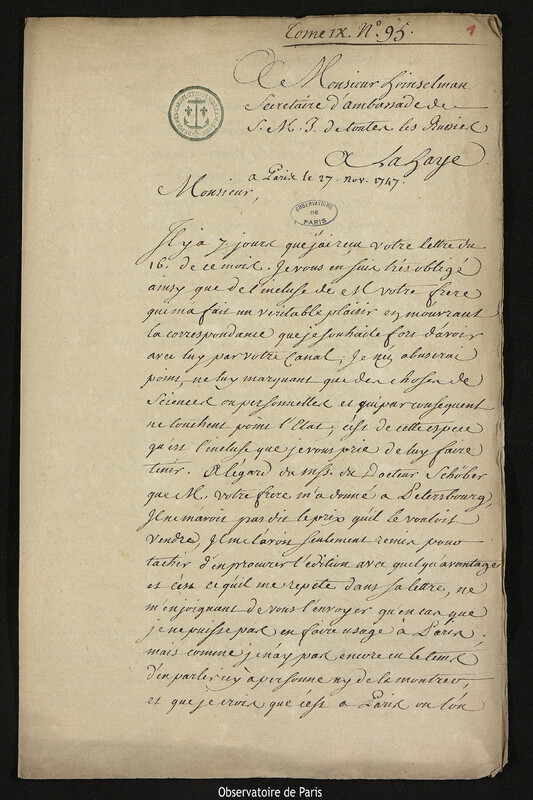 Tome IX. N.º 95.
1
A Monsieur Grinselman
Secretaire d'ambassade de
S. M. I. de toutes les Russies
A La Haye
a Paris le 27. nov. 1747.
Monsieur,
OBSERVATOIRE
DE
PARIS
Il y a 7 jours que j'ai reçu votre lettre du
16. de ce mois. Je vous en suis très obligé
ainsy que de l'incluse de M votre frere
qui m'a fait un veritable plaisir en m'ouvrant
la correspondance que je souhaite fort d'avoir
avec luy par votre Canal; Je n'en abuserai
point, ne luy marquant que des choses de
Sciences ou personnelles et qui par consequent
ne touchent point l'Etat; c'est de cette espece
qu'est l'incluse que je vous prie de luy faire
tenir. A l'égard du mss. du Docteur Schober
que M. votre frere m'a donné a Petersbourg,
Il ne m'avoit pas dit le prix qu'il le vouloit
vendre, Il me l'avoit seulement remis pour
tacher d'en procurer l'édition avec quelqu'avantage
et c'est ce qu'il me repete dans sa lettre, ne
m'enjoignant de vous l'envoyer qu'en cas que
je ne puisse pas en faire usage à Paris.
mais comme je n'ay pas encore eu le tems
d'en parler icy à personne ny de le montrer,
et que je crois que c'est a Paris ou l'on
Observatoire de Paris